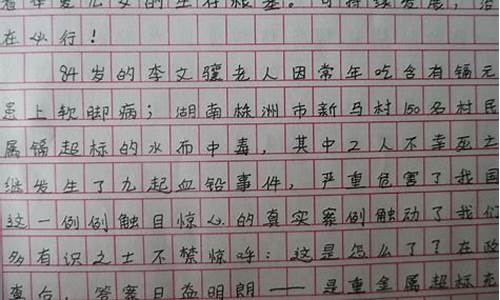 着华夏儿女的生存根基。可持续发展，治
在必行！
84岁的李文骧老人因常年吃含有镉元
患上软脚病；湖南株洲市新马村150名村民
属镉超标的水而中毒，其中2人不幸死亡
继发生了九起血铅事件，严重危害了我国
这一例例触目惊心的真实案例触动了我们
多有识之士不禁惊呼：这是怎么了？在政
查后，答案日益明朗——是重金属超标充